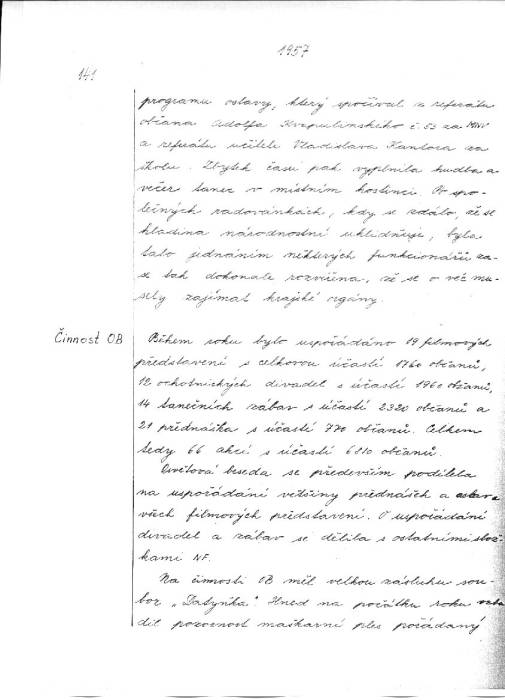 1957
141
programu oslavy, který spočíval z referátu
občana Adolfa Krzpulinského č. 53 za MNV
a referátu učitele Vladislava Kantora za
školu. Zbytek času pak vyplnila hudba a
večer tanec v místním hostinci. Po spo-
lečných radovánkách, kdy se zdálo, že se
hladina národnostní uklidňuje, byla
tato jednáním některých funkcionářů za-
se tak dokonale rozvířena, že se o věc mu-
sely zajímat krajské orgány.
Činnost OB
Během roku bylo uspořádáno 19 filmových
představení s celkovou účastí 1760 občanů,
12 ochotnických divadel s účastí 1960 občanů,
14 tanečních zábav s účastí 2320 občanů a
21 přednáška s účastí 770 občanů. Celkem
tedy 66 akcí s účastí 6810 občanů.
Osvětová beseda se především podílela
na uspořádání většiny přednášek a
všech filmových představení. O uspořádání
divadel a zábav se dělila s ostatními slož-
kami NF.
Na činnosti OB měl velkou zásluhu sou-
bor „Datyňka". Hned na počátku roku
dil pozornost maškarní ples pořádaný